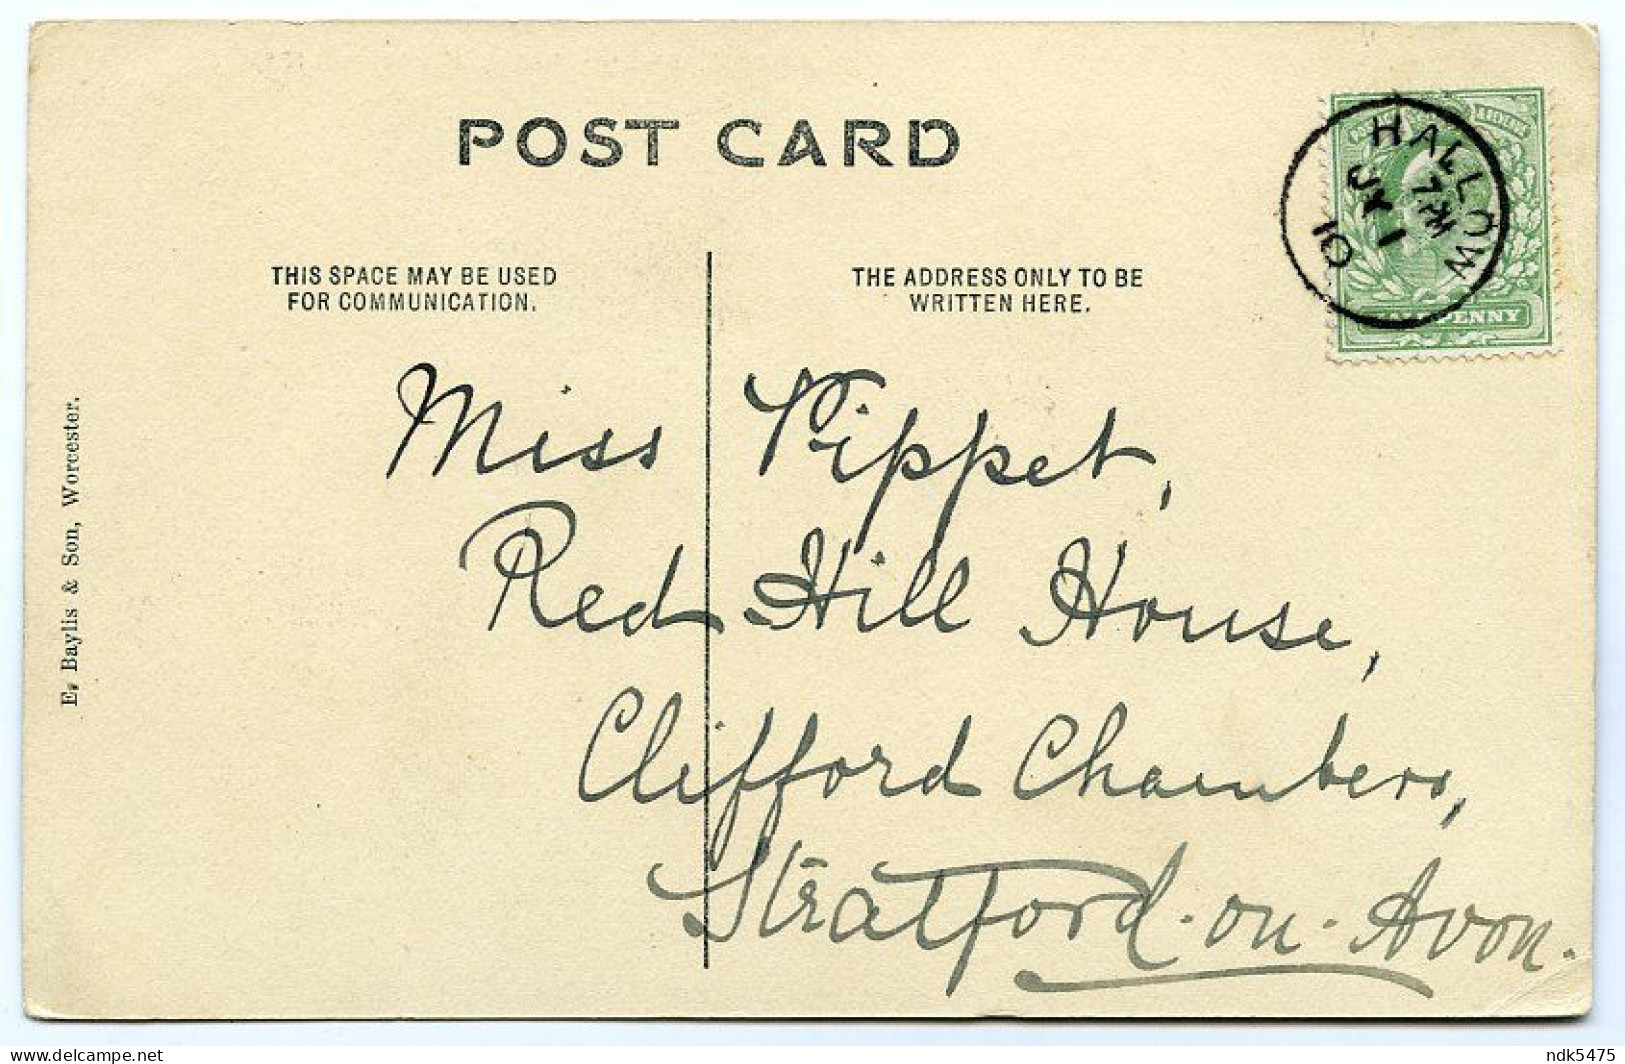 POST CARD
THIS SPACE MAY BE USED
FOR COMMUNICATION.
THE ADDRESS ONLY TO BE
WRITTEN HERE.
HALLOW
JY 1
10
HALFPENNY
E. Baylis & Son, Worcester.
Miss Pippet,
Red Hill House,
Clifford Chambers,
Stratford-on-Avon.
delcampe.net
ndk5475